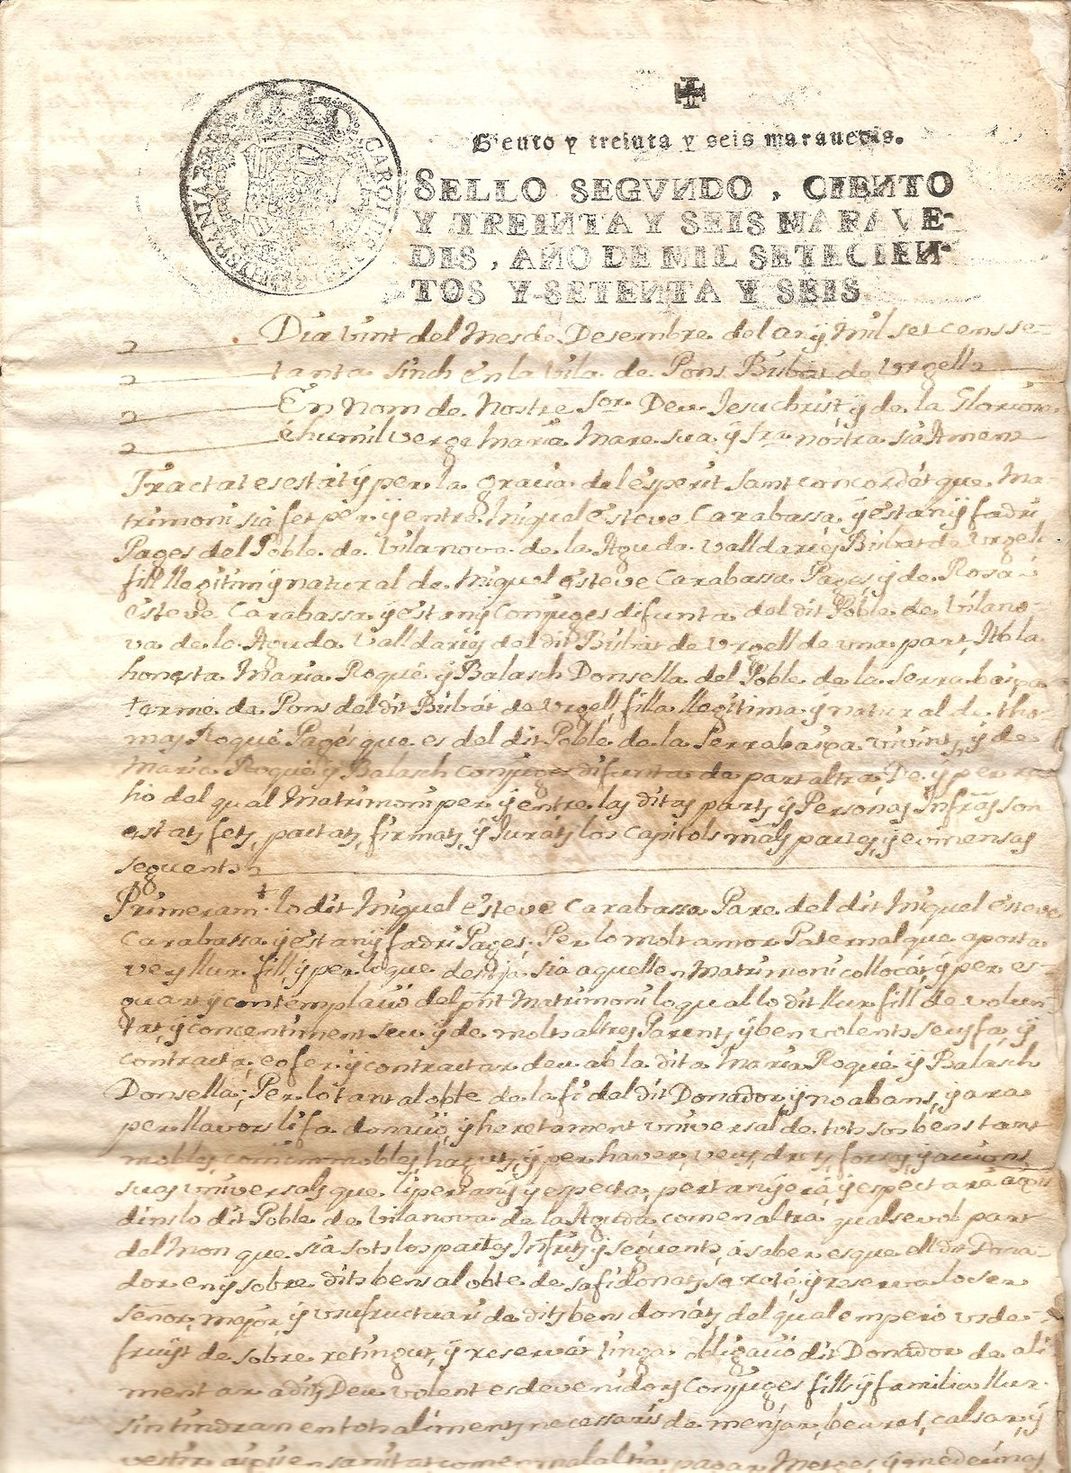 HYSPANIA
CAROLUS
Sento y treinta y seis maravedis.
SELLO SEGVNDO, CIENTO
Y TREINTA Y SEIS MARAVE-
DIS, AÑO DE MIL SETECIEN-
TOS Y SETENTA Y SEIS
Dia vint del Mes de Desembre del any Mil set cens se-
tanta sinch en la Vila de Pons Bisbat de Urgell
En Nom de Nostre Sor Deu Jesuchrist y de la Gloriosa
e humil Verge Maria Mare sua y Sra nostra sia Amen
Tractat es estat y per la gracia del esperit sant concordat que Ma-
trimoni sia fet per y entre Miquel Esteve Carabassa y Estany fadri
Pages del Poble de Vilanova de la Aguda Vall daries Bisbat de Urgell
fill llegitim y natural de Miquel Esteve Carabassa Pages y de Rosa
Esteve Carabassa y Estany Conjuges difunta del dit Poble de Vilano-
va de la Aguda Vall daries del dit Bisbat de Urgell de una part, Y la
honesta Maria Roqué y Balasch Donsella del Poble de la Serra baixa
terme de Pons del dit Bisbat de Urgell, filla llegitima y natural de Tho-
mas Roqué Pagés que es del dit Poble de la Serrabaixa vivint, y de
Maria Roqué y Balasch Conjuges difunta de part altra. De y per ra-
hó del qual Matrimoni per y entre las ditas parts y Personas Infras son
estats fets, pactats, firmats, y Jurats los Capitols mals pactes, y comensas
seguents
Primeramt. lo dit Miquel Esteve Carabassa Pare del dit Miquel Esteve
Carabassa y Estany fadri Pages. Per lo molt amor Paternal que aporta
ves llur fill, y per lo que desitja sia aquell en Matrimoni collocat, y per es-
guart y contemplació del pnt Matrimoni lo qual lo dit llur fill de volun-
tat, y concentiment seu y de molts altres Parents, y benvolents seus fa, y
contracta, e ofer y contractar deu ab la dita Maria Roqué y Balasch
Donsella; Per lo tant al obte de la fi del dit Donador, y no abans, y ara
per llavors li fa donació, y heretament universal de tots sos bens tant
mobles, com immobles, haguts, y per haver, veus, drets, forsas, y accions
suas universals que li pertany y especta, pertanyerá y espectará axis
dins lo dit Poble de Vilanova de la Aguda com en altra qualsevol part
del Mon que sia sots los pactes Infrits y seguents, á saber es que ell dit Dona-
dor en y sobre dits bens al obte de sa fi Donats, se reté, y reserva lo ser
señor, major, y usufructuari de dits bens donats, del qual empero usde-
fruyt de sobre retingut, y reservat tinga obligació dit Donador de ali-
mentar a dits Deu volent esdevenidors Conjuges fills y familia llur
sintindran en tots aliments necessaris de menjar, beurer, calsar, y
vestir axis en sanitat com en malaltia, pagar Metges, y medecinas